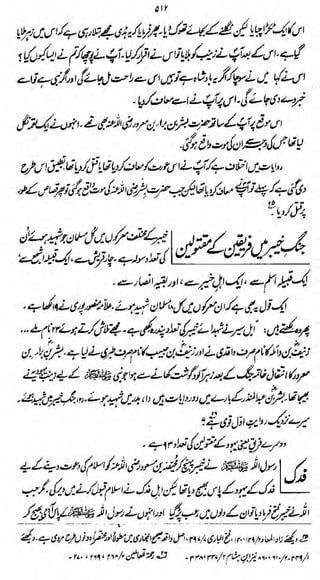 ۵۱۲
اس کا ایک ٹکڑا چبایا لیکن نگلنے کے بجائے تھوک دیا۔ پھر فرمایا کہ یہ ہڈی مجھے بتلا رہی ہے کہ اس میں زہر ملایا
گیا ہے۔ اس کے بعد آپؐ نے زینب کو بلایا تو اس نے اقرار کر لیا۔ آپؐ نے پوچھا کہ تم نے ایسا کیوں کیا؟
اس نے کہا میں نے سوچا کہ اگر یہ بادشاہ ہے تو ہمیں اس سے راحت مل جائے گی اور اگر نبی ہے تو اسے
خبر دے دی جائے گی۔ اس پر آپؐ نے اسے معاف کر دیا۔
اس موقع پر آپؐ کے ساتھ حضرت بشر بن براء بن معرور رضی اللہ عنہ بھی تھے۔ انہوں نے ایک لقمہ نگل
لیا تھا جس کی وجہ سے ان کی موت واقع ہو گئی۔
روایات میں اختلاف ہے کہ آپؐ نے اس عورت کو معاف کر دیا تھا یا قتل کر دیا تھا۔ تطبیق اس طرح
دی گئی ہے کہ پہلے تو آپؐ نے معاف کر دیا تھا لیکن جب حضرت بشر رضی اللہ عنہ کی موت واقع ہو گئی تو پھر قصاص کے طور
پر قتل کر دیا۔
جنگ خیبر میں فریقین کے مقتولین
خیبر کے مختلف معرکوں میں کل مسلمان جو شہید ہوئے ان
کی تعداد سولہ ہے، چار قریش سے، ایک قبیلہ اشجع سے
ایک قبیلہ اسلم سے، ایک اہل خیبر سے، اور بقیہ انصار سے۔
ایک قول یہ بھی ہے کہ ان معرکوں میں کل ۱۸ مسلمان شہید ہوئے۔ علامہ منصور پوری نے ۱۹ لکھا ہے۔
پھر وہ لکھتے ہیں: "اہل سیر نے شہدائے خیبر کی تعداد پندرہ لکھی ہے۔ مجھے تلاش کرتے ہوئے ۲۳ نام ملے ....
زنیف بن وائلہ کا نام صرف واقدی نے اور زنیف بن حبیب کا نام صرف طبری نے لیا ہے۔ بشر بن براء بن
معرور کا انتقال خاتمہ جنگ کے بعد زہر آلود گوشت کھانے سے ہوا جو نبی ﷺ کے لیے زینب نے
بھیجا تھا۔ بشر بن عبد المنذر کے بارے میں دو روایات ہیں (۱) بدر میں شہید ہوئے۔ (۲) جنگ خیبر میں شہید ہوئے۔
میرے نزدیک روایت اول قوی ہے۔"
دوسرے فریق یعنی یہود کے مقتولین کی تعداد ۹۳ ہے۔
فدک
رسول اللہ ﷺ نے خیبر پہنچ کر محیصہ بن مسعود رضی اللہ عنہ کو اسلام کی دعوت دینے کے لیے
فدک کے یہود کے پاس بھیج دیا تھا لیکن اہل فدک نے اسلام قبول کرنے میں دیر کی۔ مگر جب
اللہ نے خیبر فتح فرما دیا تو ان کے دلوں میں رعب پڑ گیا اور انہوں نے رسول اللہ ﷺ کے پاس آدمی بھیج کر